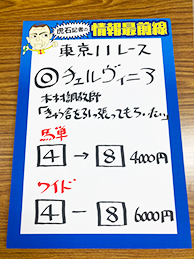 虎石記者の
情報最前線
東京11レース
◎チェルヴィニア
木村調教師
「きゅう舎を引っ張ってもらいたい」
馬単
4→8 4000円
ワイド
4-8 6000円